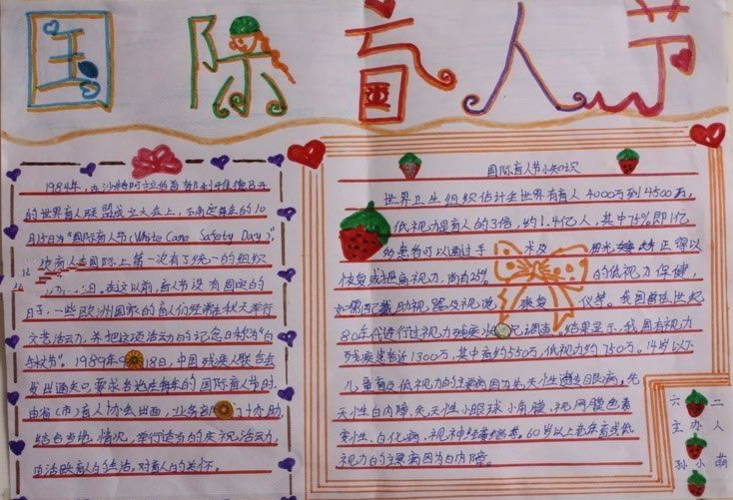 国际盲人节
1984年,在沙特阿拉伯首都利雅德召开
的世界盲人联盟成立大会上,确定每年的10
月15日为"国际盲人节(White Cane Safety Day)",
盲人在国际上第一次有了统一的组织
在这以前,盲人节没有固定的
日子,一些欧洲国家的盲人们经常在秋天举行
文艺活动,并把这项活动的记念日称为"白
1989年9 18日,中国残疾人联合会
发出通知,要求各地在每年的国际盲人节时,
由省(市)盲人协会出面,业务部门协助,
结合当地情况,举行适当的庆祝活动,
活跃盲人的生活,对盲人的关怀。
国际盲人节小知识
世界卫生组织估计全世界有盲人4000万到4500万,
低视力是盲人的3倍,约1.4亿人,其中75%即1亿
的患者可以通过手术及 得以
恢复或提高视力,尚有25% 的低视力保健,
助视器及视觉康复 仪等。我国曾在世纪
80年代进行过视力残疾 调查。结果显示,我国有视力
残疾患者近1300万,其中盲约550万,低视力约750万。14岁以下
儿童盲及低视力的主要病因为先天性遗传眼病,先
天性白内障、先天性小眼球小角膜、视网膜色素
变性、白化病、视神经萎缩等。60岁以上老年盲或低
视力的主要病因为白内障。
六 二
主办人
孙小萌